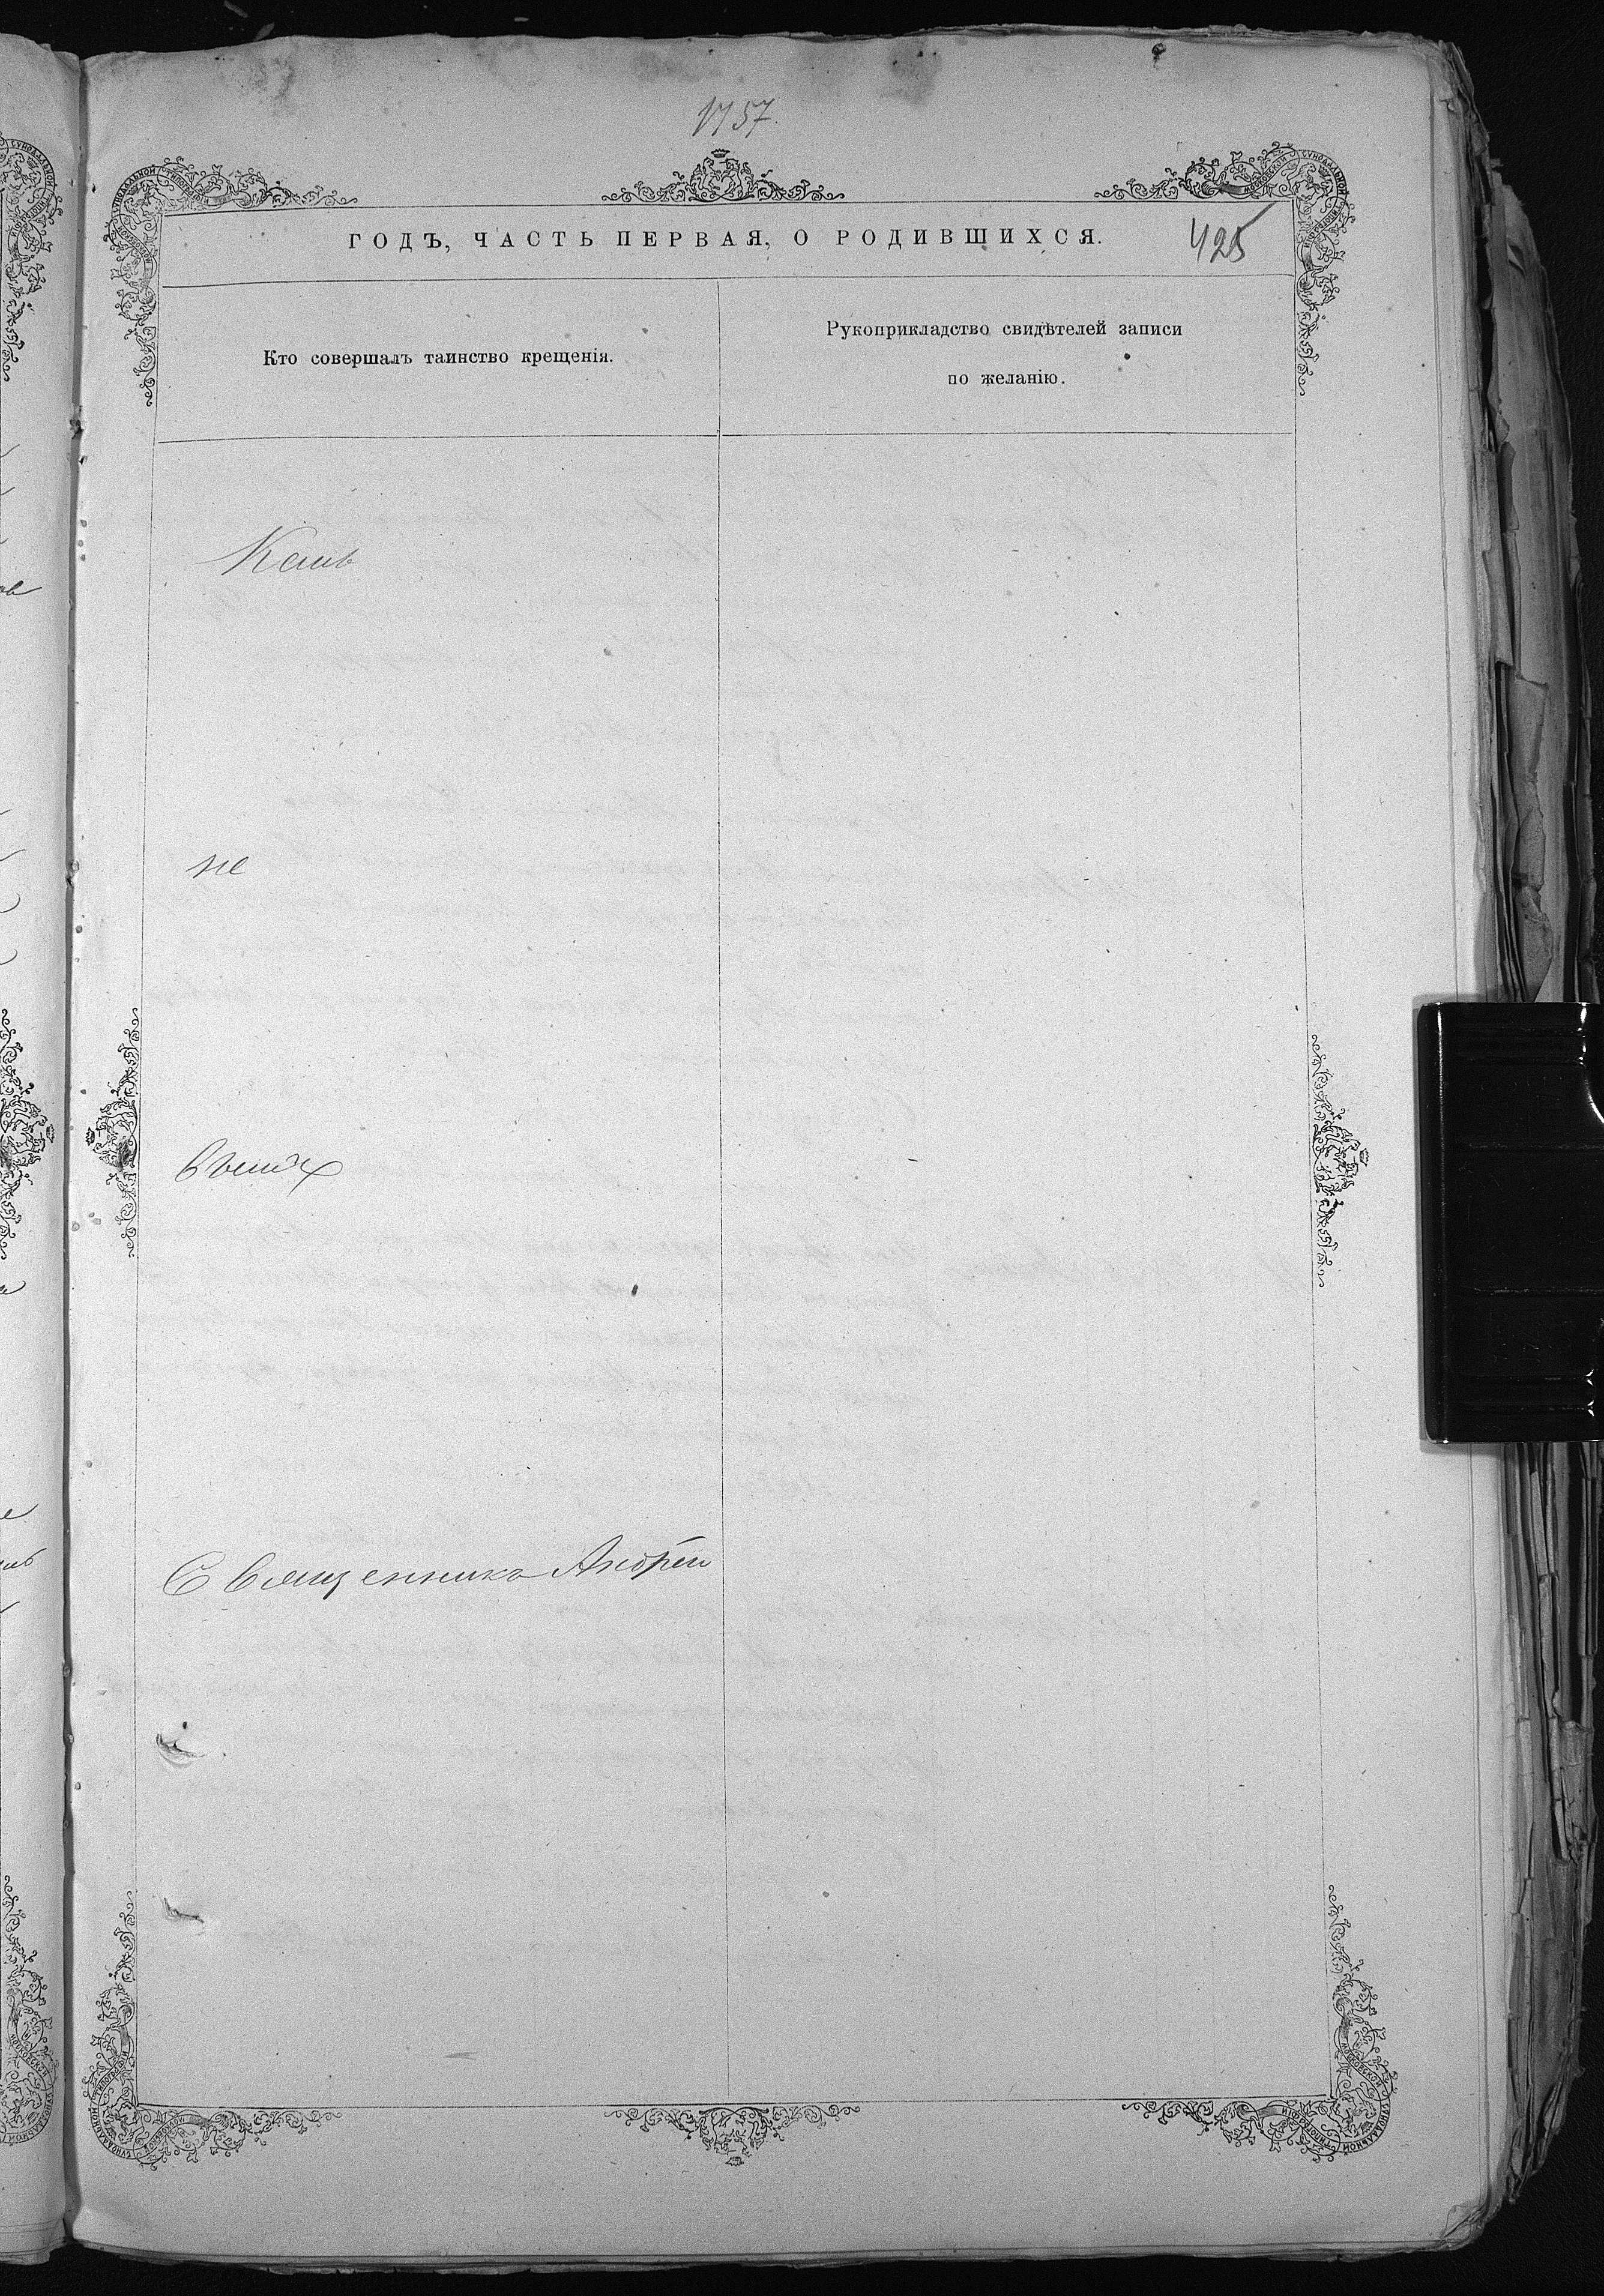 1757.
ГОДЪ, ЧАСТЬ ПЕРВАЯ, О РОДИВШИХСЯ.
425
Кто совершалъ таинство крещенія.
Рукоприкладство свидѣтелей записи
по желанію.
не
Священника Андреи